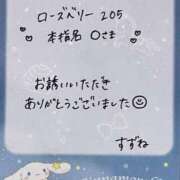 ローズベリー 205
本指名 〇さま
お誘いいただき
ありがとうございました
すずね